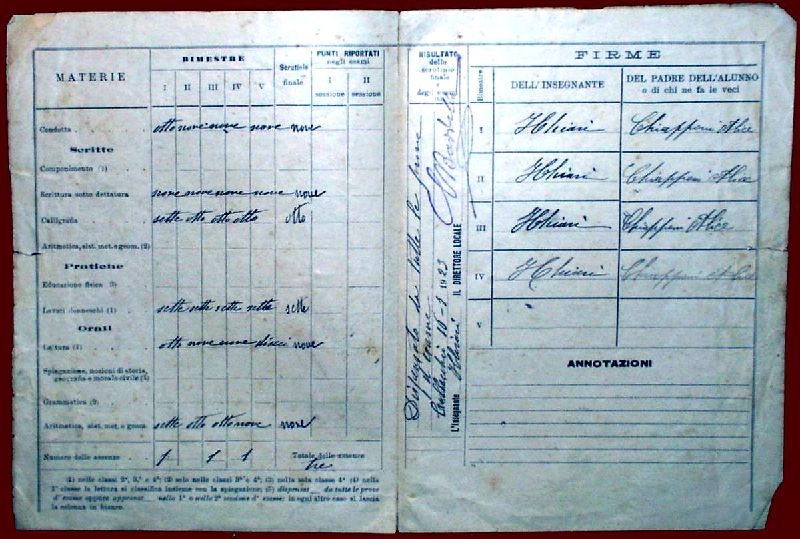 MATERIE
BIMESTRE
I II III IV V
Scrutinio finale
PUNTI RIPORTATI
negli esami
I sessione
II sessione
Condotta otto nove nove nove nove
Scritte
Componimento (1)
Scrittura sotto dettatura nove nove nove nove nove
Calligrafia sette otto otto otto otto
Aritmetica, sist. met. e geom. (2)
Pratiche
Educazione fisica (3)
Lavori donneschi (1) sette sette sette sette sette
Orali
Lettura (1) otto nove nove dieci nove
Spiegazione, nozioni di storia,
geografia e morale civile (4)
Grammatica (2)
Aritmetica, sist. met. e geom. sette otto otto nove nove
Numero delle assenze 1 1 1 Totale delle assenze
tre
(1) nelle classi 2ª, 3ª e 4ª; (2) solo nelle classi 3ª e 4ª; (3) nella sola classe 4ª (4) nella
1ª classe la lettura si classifica insieme con la spiegazione; (5) dispensat__ da tutte le prove
d'esame oppure approvat__ nella 1ª o nella 2ª sessione d'esame; in ogni altro caso si lascia
la colonna in bianco.
RISULTATO
dello
scrutinio
finale
e
degli esami
Dispensata da tutte le prove
d'esame
1923
L'Insegnante HChiari
IL DIRETTORE LOCALE
FIRME
Bimestre
DELL'INSEGNANTE
DEL PADRE DELL'ALUNNO
o di chi ne fa le veci
I HChiari Chiappini Alice
II HChiari Chiappini Alice
III HChiari Chiappini Alice
IV HChiari Chiappini Alice
V
ANNOTAZIONI